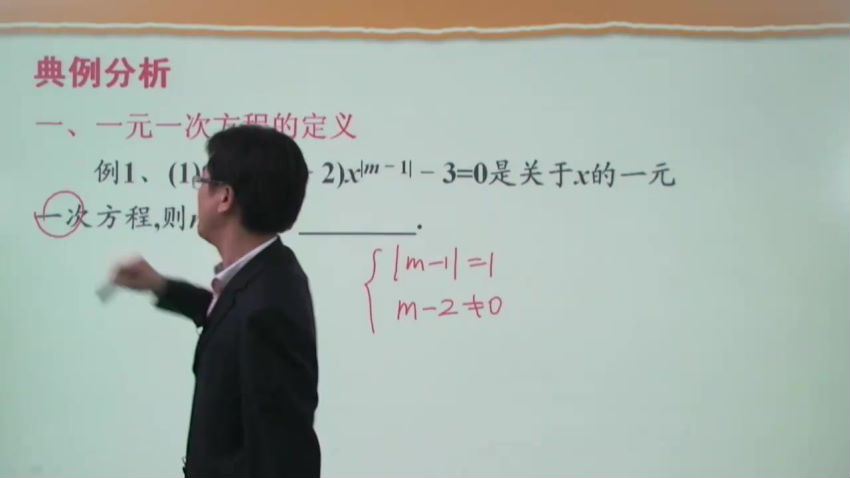 典例分析
一、一元一次方程的定义
例1、(1) 2)x|m-1| - 3=0是关于x的一元
一次方程,则 ________.
|m-1|=1
m-2≠0